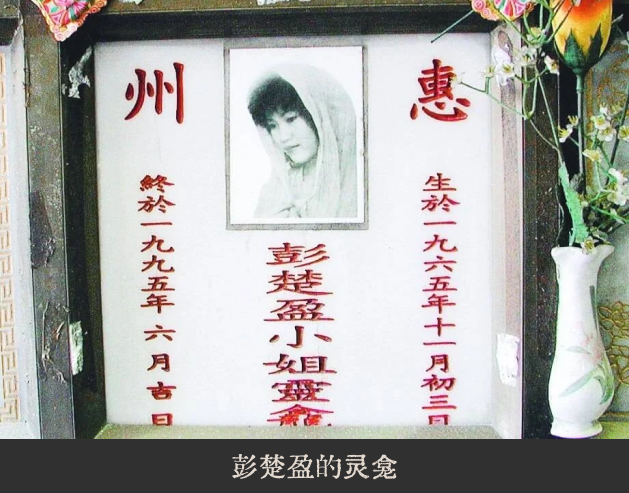 惠州
生於一九六五年十一月初三日
彭楚盈小姐靈龕
終於一九九五年六月吉日
彭楚盈的灵龛